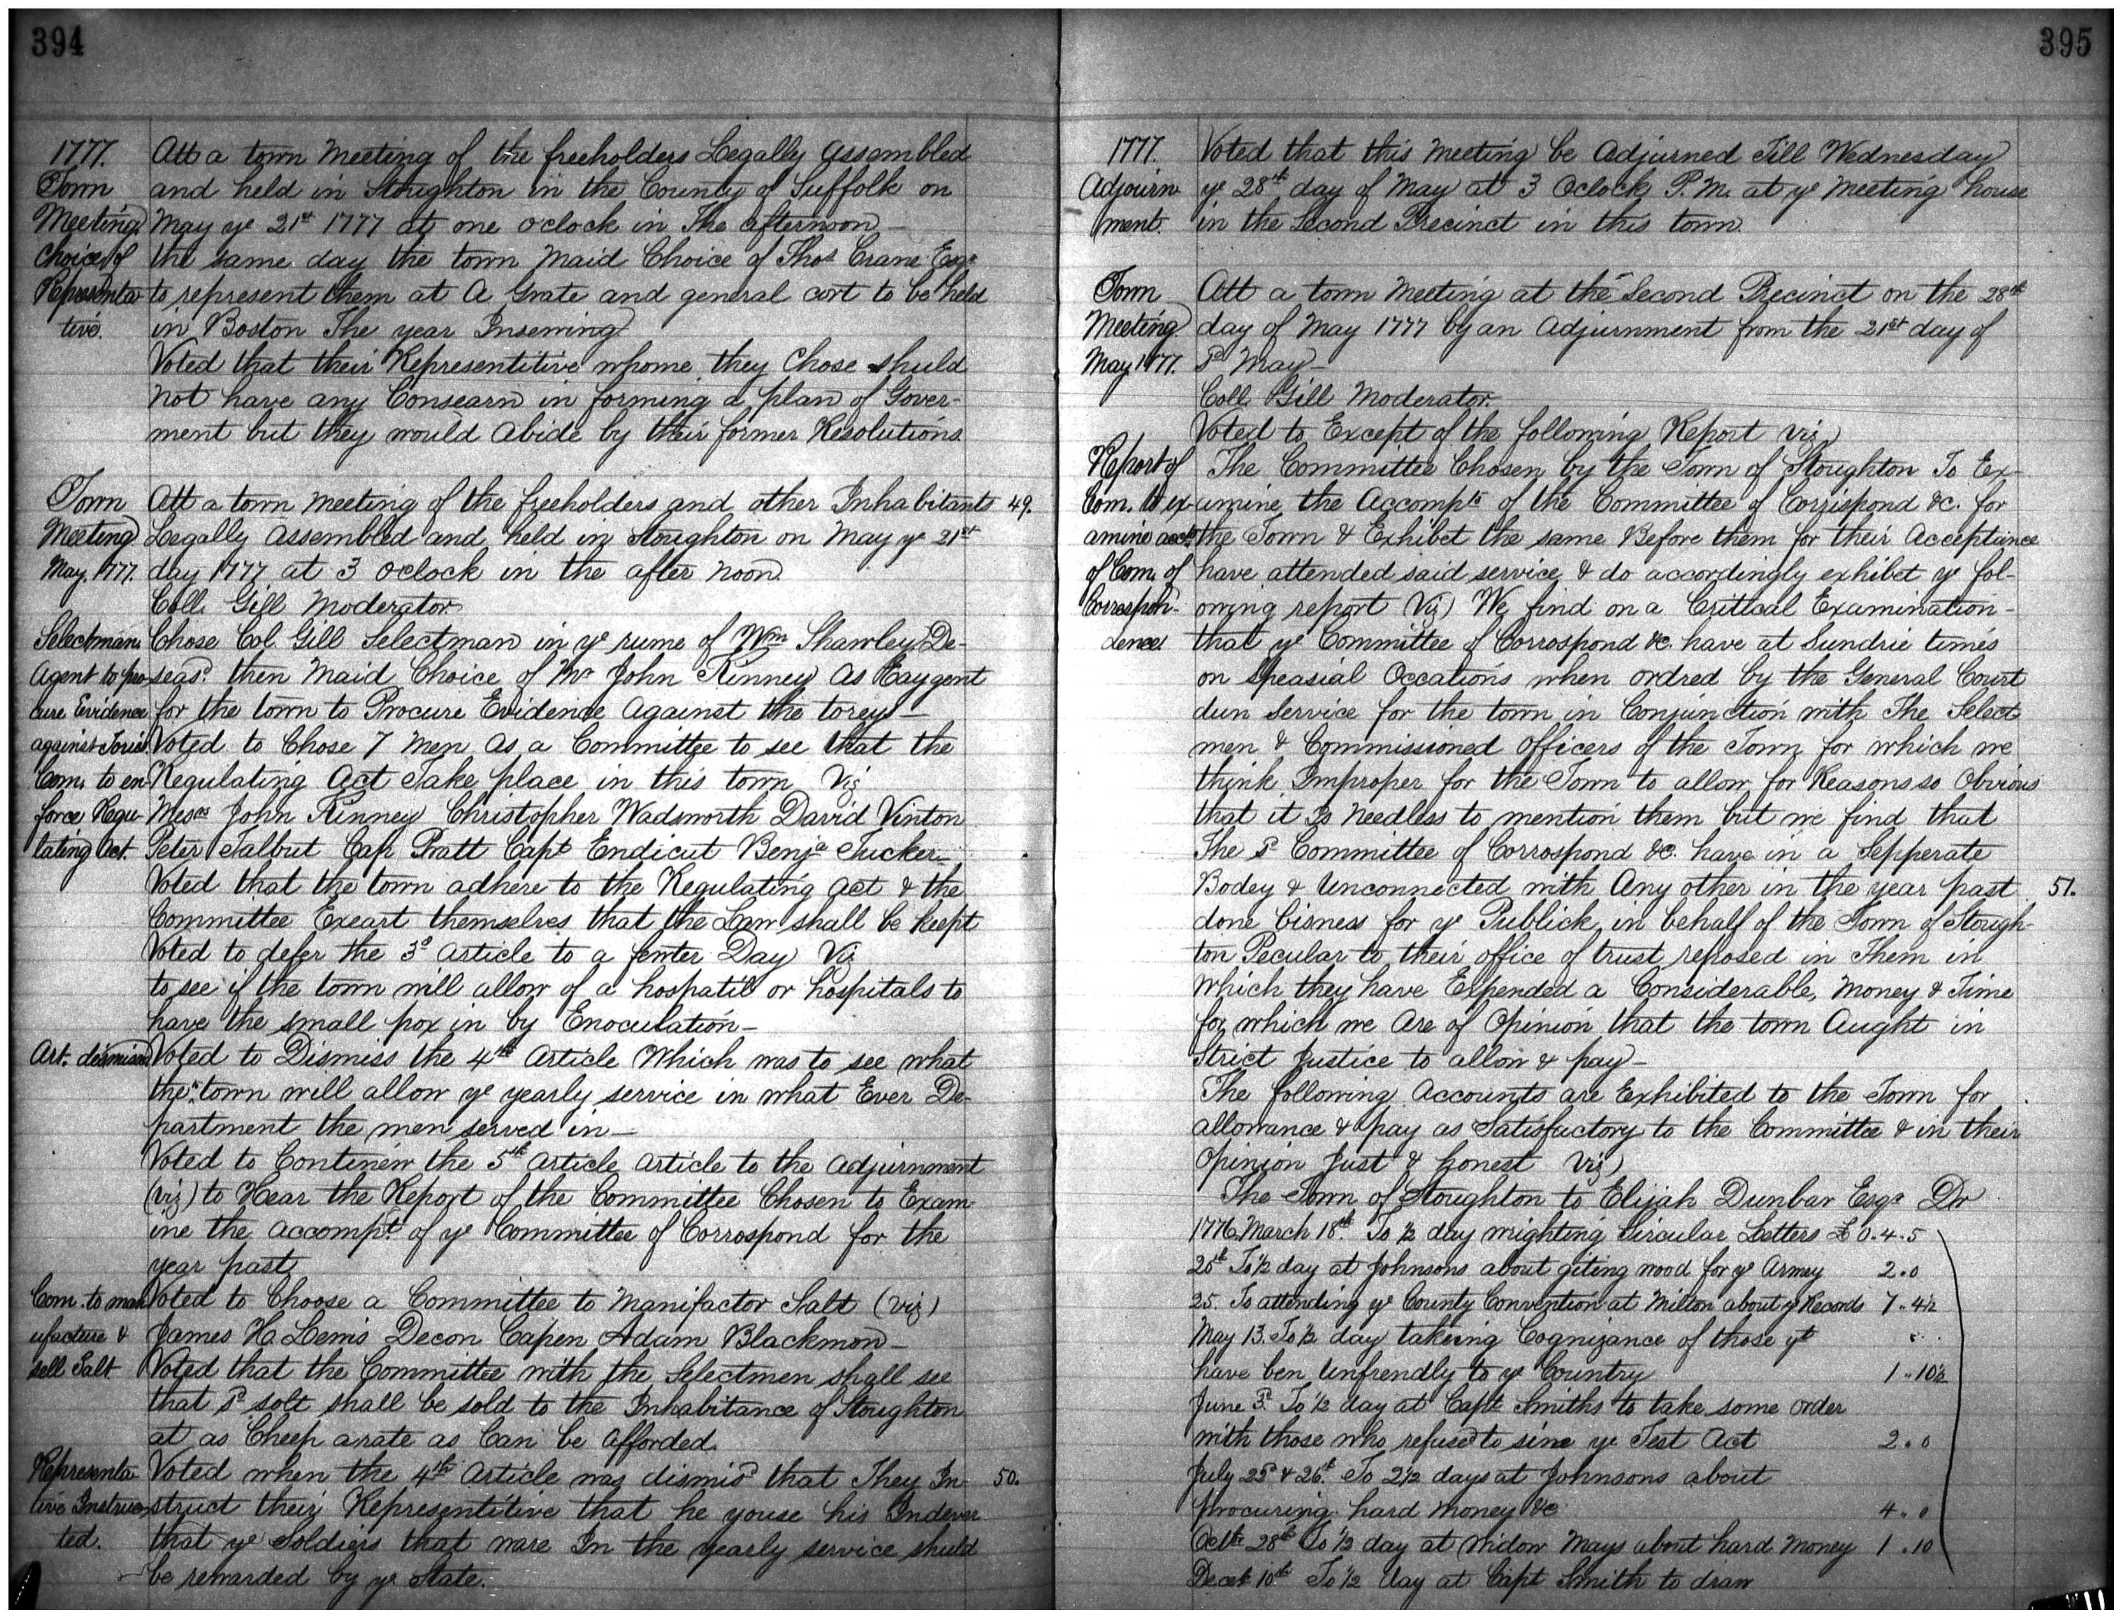 394
1777.
Town
Meeting.
Choice of
Representa-
tive.
Att a town Meeting of the freeholders Legally Assembled
and held in Stoughton in the County of Suffolk on
May ye 21st 1777 at one oclock in The afternoon—
the same day the town Maid Choice of Thos Crane Esqr
to represent them at A Grate and general cort to be held
in Boston The year Insewing
Voted that their Representitive whome they Chose shuld
Not have any Consearn in forming a plan of Gover-
ment but they would Abide by their former Resolutions.
Town
Meeting
May, 1777.
Att a town Meeting of the freeholders and other Inhabitants 49.
Legally Assembled and held in Stoughton on May ye 21st
day 1777 at 3 oclock in the after Noon.
Coll. Gill Moderator
Selectman.
Agent to pro-
cure Evidence
against Tories.
Com. to en-
force Regu-
lating Act.
Chose Col. Gill Selectman in ye rume of Wm Shawley De-
seasd. then Maid Choice of Mr John Kinney As Eaygent
for the town to Procure Evidence Against the toreys—
Voted to Chose 7 Men as a Committee to see that the
Regulating Act Take place in this town Viz
Mesrs John Kinney Christopher Wadsworth David Vinton
Peter Talbut Cap Pratt Capt Endicut Benja Tucker—
Voted that the town adhere to the Regulating Act & the
Committee Exeart themselves that the Law shall be Keept
Voted to defer the 3d Article to a fewter Day Viz
to see if the town will allow of a hospatil or hospitals to
have the small pox in by Enoculation—
Art. dismissed
Voted to Dismiss the 4th Article Which was to see what
the town will allow ye yearly service in what Ever De-
partment the men served in—
Voted to Continew the 5th Article Article to the Adjurnment
(viz) to Hear the Report of the Committee Chosen to Exam-
ine the Accompt. of ye Committee of Corrospond for the
year past
Com. to man-
ufacture &
sell Salt
Voted to Choose a Committee to Manifactor Salt (viz)
James H. Lewis Decon Capen Adam Blackmon—
Voted that the Committee with the Selectmen shall see
that sd solt shall be sold to the Inhabitance of Stoughton
at as Cheep arate as Can be Afforded.
Representa-
tive Instruc-
ted.
Voted when the 4th Article was dismisd that They In- 50.
struct their Representitive that he youse his Indever
that ye Soldiers that ware In the yearly service shuld
be rewarded by ye State.
395
1777.
Adjourn-
ment.
Voted that this Meeting be Adjurned Till Wednesday
ye 28th day of May at 3 Oclock P.M. at ye Meeting house
in the Second Precinct in this town.
Town
Meeting
May 1777.
Att a town Meeting at the Second Precinct on the 28th
day of May 1777 by an Adjurnment from the 21st day of
sd May—
Coll. Gill Moderator
Voted to Except of the following Report viz
Report of
Com. to ex-
amine accts
of Com. of
Correspon-
dence.
The Committee Chosen by the Town of Stoughton To Ex-
amine the Accompts of the Committee of Corrispond &c. for
the Town & Exhibet the same Before them for their Acceptance
have attended said service & do accordingly exhibet ye fol-
owing report Viz) We find on a Critical Examination—
that ye Committee of Corrospond &c. have at Sundrie times
on Speasial Occations when ordred by the General Court
dun Service for the town in Conjunction with The Select
men & Commissioned Officers of the Town for which we
think Improper for the Town to allow for Reasons so Obvious
that it Is Needless to mention them but we find that
The sd Committee of Corrospond &c. have in a Sepperate
Bodey & Unconnected with Any other in the year past 51.
done bisness for ye Publick in behalf of the Town of Stough-
ton Pecular to their office of trust reposed in Them in
Which they have Expended a Considerable, Money & Time
for which we Are of Opinion that the town Aught in
Strict Justice to allow & pay—
The following Accounts are Exhibited to the Town for
allowance & pay as Satisfactory to the Committee & in their
Opinion Just & honest Viz)
The Town of Stoughton to Elijah Dunbar Esqr Dr
1776 March 18th. To ½ day wrighting Circular Letters £0.4.5
25th To ½ day at Johnsons about giting wood for ye Armey 2.0
25. To attending ye County Convention at Milton about ye Records 7.4½
May 13. To ½ day takeing Cognizance of those yt
have ben Unfrendly to ye Country 1.10½
June 3d. To ½ day at Capt Smiths to take some order
with those who refused to sine ye Test Act 2.0
July 25d & 26.t To 2½ days at Johnsons about
procuring hard money &c 4.0
Octbr 28th To ½ day at Widow Mays about hard Money 1.10
Decebr 10th To ½ day at Capt Smith to draw